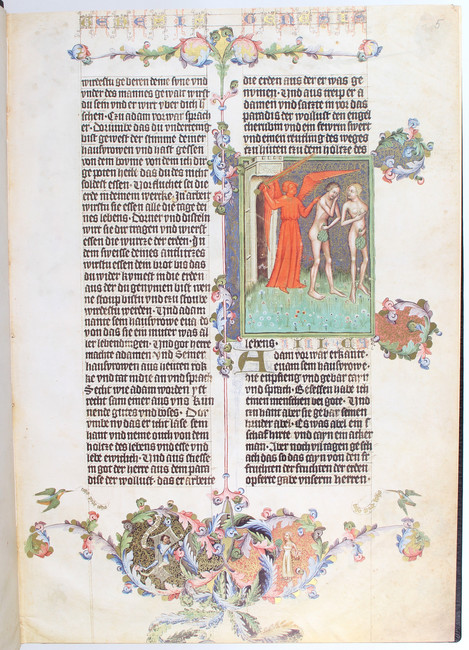 5
wirdestu geberen deine süne vnd
vnder des mannes gewalt wirst
du sein vnd er wirt vber dich h
schen. Czu adam vorwar sprach
er. Dorumbe das du vndertenig
bist gewest der stimme deiner
hausvrowen vnd hast gessen
von dem bowme von dem ich dir
gepoten hette das du des nicht
soldest essen. Vorfluchet sei die
erde in deinem wercke. In arbeit
wirstu sie essen alle die tage dei
nes lebens. Dorner vnd disteln
wirt sie dir tragen vnd wierst
essen die wurtze der erden. In
dem sweisse deines antlitzes
wirstu essen dein brot bis das
du wider kymest in die erden
aus der du genumen bist wen
ne stoup bistu vnd czu stoube
wirdestu werden. Vnd adam
nante sein hausvrowe eua do
von das sie ein muter was al
ler lebendingen. Vnd got herre
machte adamen vnd Seiner
hausvrowen aus heuten rok
ke vnd tat in die an vnd sprach
Secht wie adam worden ist
recht sam einer aus vns kun
nende gutes vnd böses. Dor
vmbe ny das er icht lasse sein
hant vnd neme ouch von dem
holtze des lebens vnd esse vnd
lebe ewichen. Vnd aus stiesse
in got der herre aus dem para
dise der wollust. das er arbeite
die erden aus der er was ge
nymen. Vnd aus treip er a
damen vnd satzte in vor das
paradis der wollust den engel
cherubin vnd ein feiryn swert
vnd einen reutling des weges
czu hüten czu dem holtze des
lebens.
Adam vorwar erkante
euam sein hausvrowe.
die enpfieng vnd gebar cayn
vnd sprach. Gesessen habe ich
einen menschen bei gote. Vnd
aber sie gebar seinen
bruder abel. Es was abel ein
schaf hirte vnd cayn ein acker
man. Aber noch vil tagen gesch
ach das so das cayn von den
fruchten der erden
opferte gabe vnserm herren.